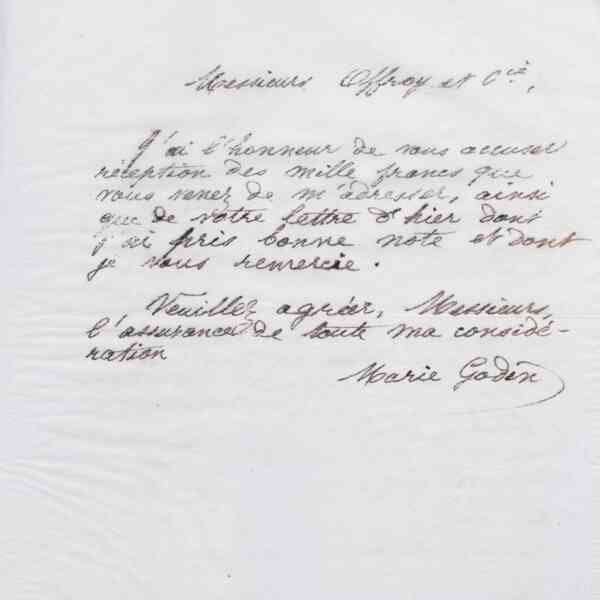 Messieurs Offroy et Cie,
J'ai l'honneur de vous accuser
réception des mille francs que
vous venez de m'adresser, ainsi
que de votre lettre d'hier dont
j'ai pris bonne note et dont
je vous remercie.
Veuillez agréer, Messieurs,
l'assurance de toute ma considé-
ration
Marie Godin